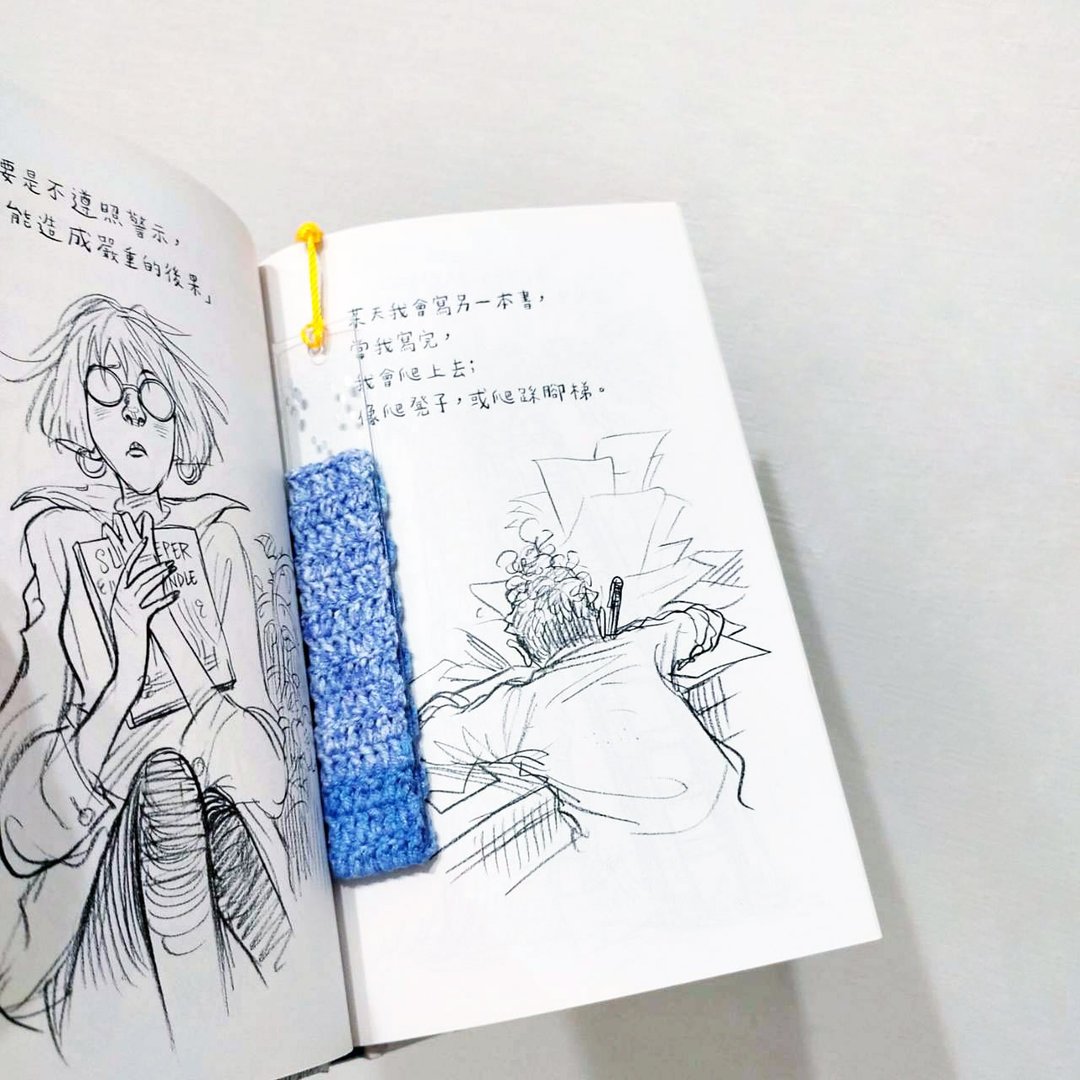 要是不遵照警示，
能造成嚴重的後果」
SU EPER
NDLE
某天我會寫另一本書，
當我寫完，
我會爬上去；
像爬凳子，或爬踩腳梯。